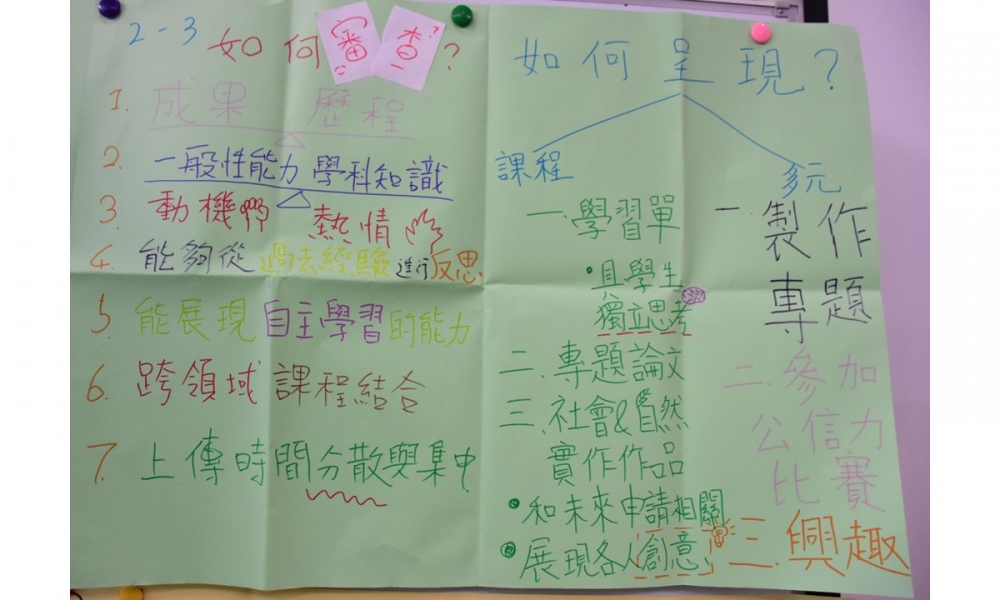 2-3 如何審查?
1. 成果 歷程
2. 一般性能力 學科知識
3. 動機 熱情
4. 能夠從過去經驗進行反思
5 能展現自主學習的能力
6. 跨領域 課程結合
7. 上傳時間分散與集中
如何呈現?
課程
一.學習單
•且學生
獨立思考
二.專題論文
三.社會&自然
實作作品
•和未來申請相關
•展現各人創意
多元
一 製作
專題
二.參加
公信力
比賽
三.興趣